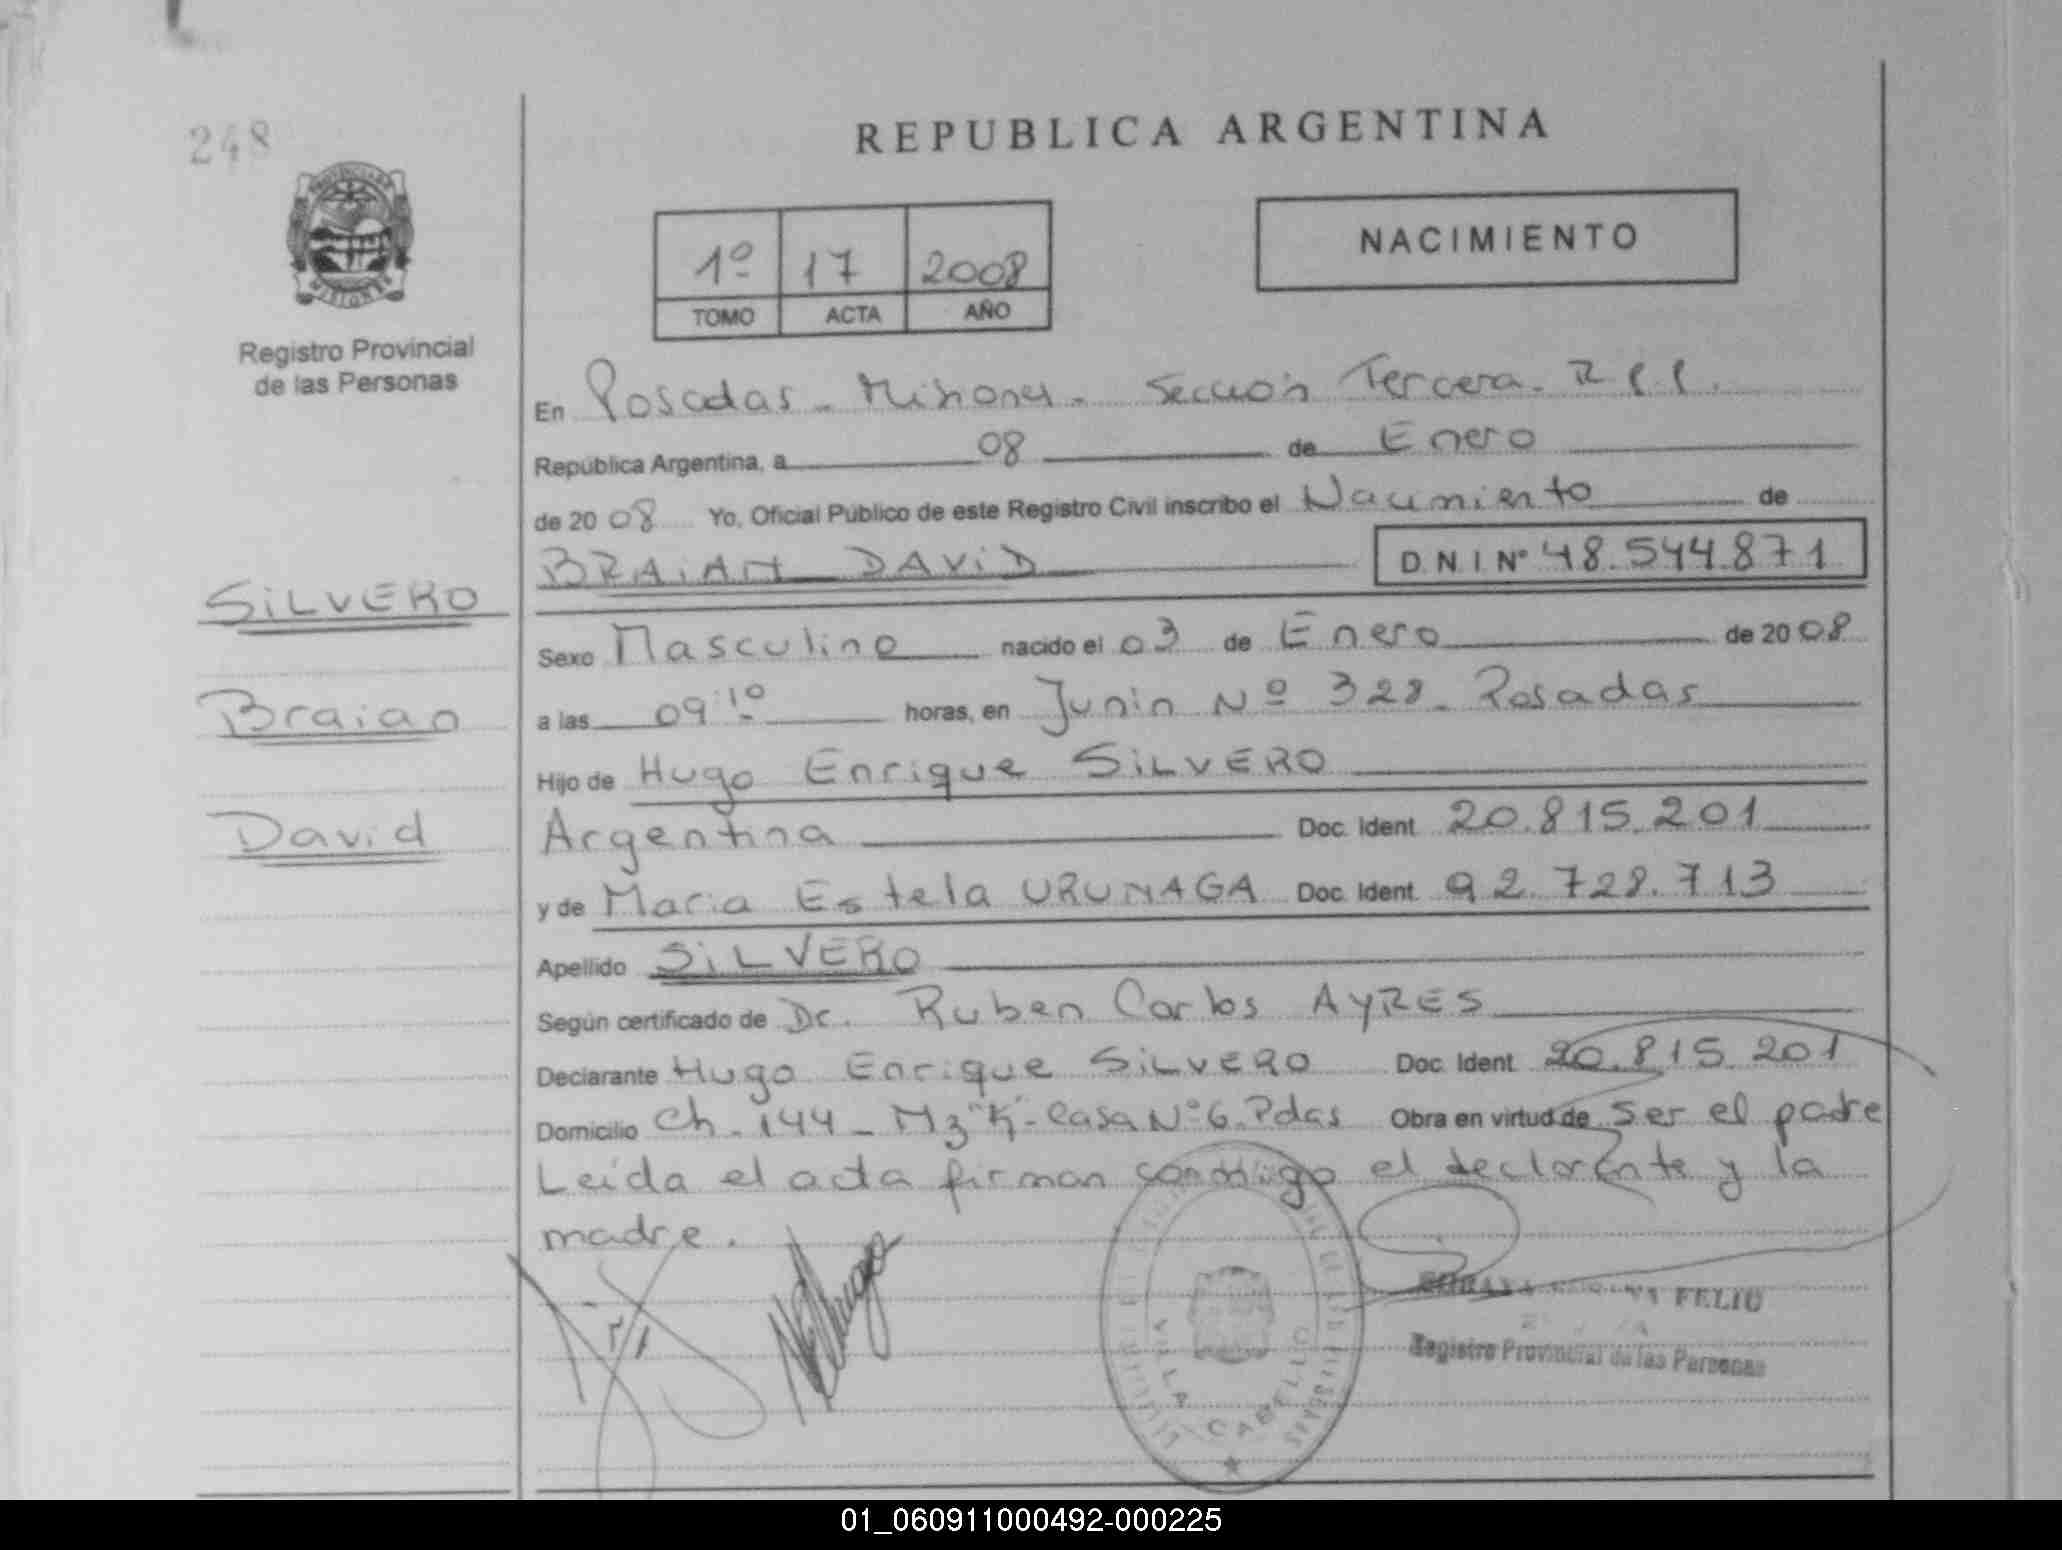 248
REPUBLICA ARGENTINA
PROVINCIA DE
MISIONES
Registro Provincial
de las Personas
1º 17 2008
TOMO ACTA AÑO
NACIMIENTO
En Posadas - Misiones - Sección Tercera - R.P.P.
República Argentina, a 08 de Enero
de 2008 Yo, Oficial Público de este Registro Civil inscribo el Nacimiento de
BRAIAN DAVID D.N.I Nº 48.544.871
SILVERO
Braian
David
Sexo Masculino nacido el 03 de Enero de 2008
a las 09:10 horas, en Junin Nº 328 - Posadas
Hijo de Hugo Enrique SILVERO
Argentina Doc. Ident 20.815.201
y de Maria Estela URUNAGA Doc. Ident. 92.728.713
Apellido SILVERO
Según certificado de Dr. Ruben Carlos AYRES
Declarante Hugo Enrique SILVERO Doc. Ident 20.815.201
Domicilio Ch. 144 - Mz "K" - Casa Nº 6. Pdas Obra en virtud de ser el padre
Leída el acta firman conmigo el declarante y la
madre.
Hugo
FELIU
Registro Provincial de las Personas
VILLA CABELLO
01_060911000492-000225